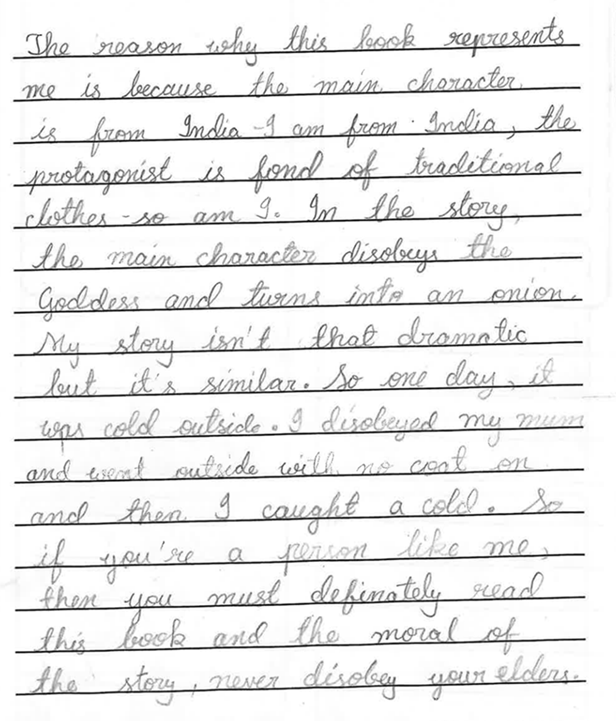 The reason why this book represents
me is because the main character
is from India - I am from India, the
protagonist is fond of traditional
clothes - so am I. In the story,
the main character disobeys the
Goddess and turns into an onion.
My story isn't that dramatic
but it's similar. So one day, it
was cold outside. I disobeyed my mum
and went outside with no coat on
and then I caught a cold. So
if you're a person like me,
then you must definately read
this book and the moral of
the story, never disobey your elders.